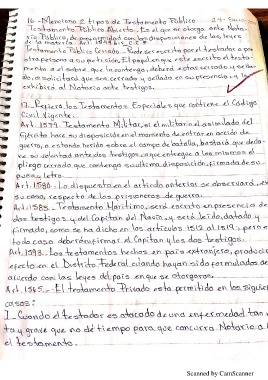 16.- Mencione 2 tipos de Testamento Público
Testamento Público Abierto.- Es el que se otorga ante Nota-
rio Público, de conformidad con las disposiciones de las leyes
de la materia. Art. 1549 C.C.
Testamento Público Cerrado.- Puede ser escrito por el testador o por
otra persona a su petición. El papel en que este escrito el testa-
mento o el sobre que lo contenga deberá estar cerrado y sella-
do, o solicitará que sea cerrado y sellado en su presencia y
exhibirá al Notario ante testigos.
17.- Refiera los Testamentos Especiales que contiene el Código
Civil Vigente.
Art. 1579. Testamento Militar, si el militar o el asimilado del
Ejército hace su disposición en el momento de entrar en acción de
guerra, o estando herido sobre el campo de batalla, bastará que decla-
re su voluntad ante dos testigos, o que entregue a los mismos el
pliego cerrado que contenga su última disposición, firmada de su
puño y letra.
Art. 1580. Lo dispuesto en el artículo anterior se observará, en
su caso, respecto de los prisioneros de guerra.
Art. 1585. Testamento Marítimo, será escrito en presencia de
dos testigos y del Capitán del Navío, y será leído, datado y
firmado, como se ha dicho en los artículos 1512 al 1519, pero en
todo caso deberán firmar el Capitán y los dos testigos.
Art. 1593. Los testamentos hechos en país extranjero, producirán
efecto en el Distrito Federal cuando hayan sido formulados de
acuerdo con las leyes del país en que se otorgaron.
Art. 1565.- El testamento Privado esta permitido en los siguientes
casos:
I.- Cuando el testador es atacado de una enfermedad tan
ta y grave que no dé tiempo para que concurra Notario a
el testamento.
Scanned by CamScanner